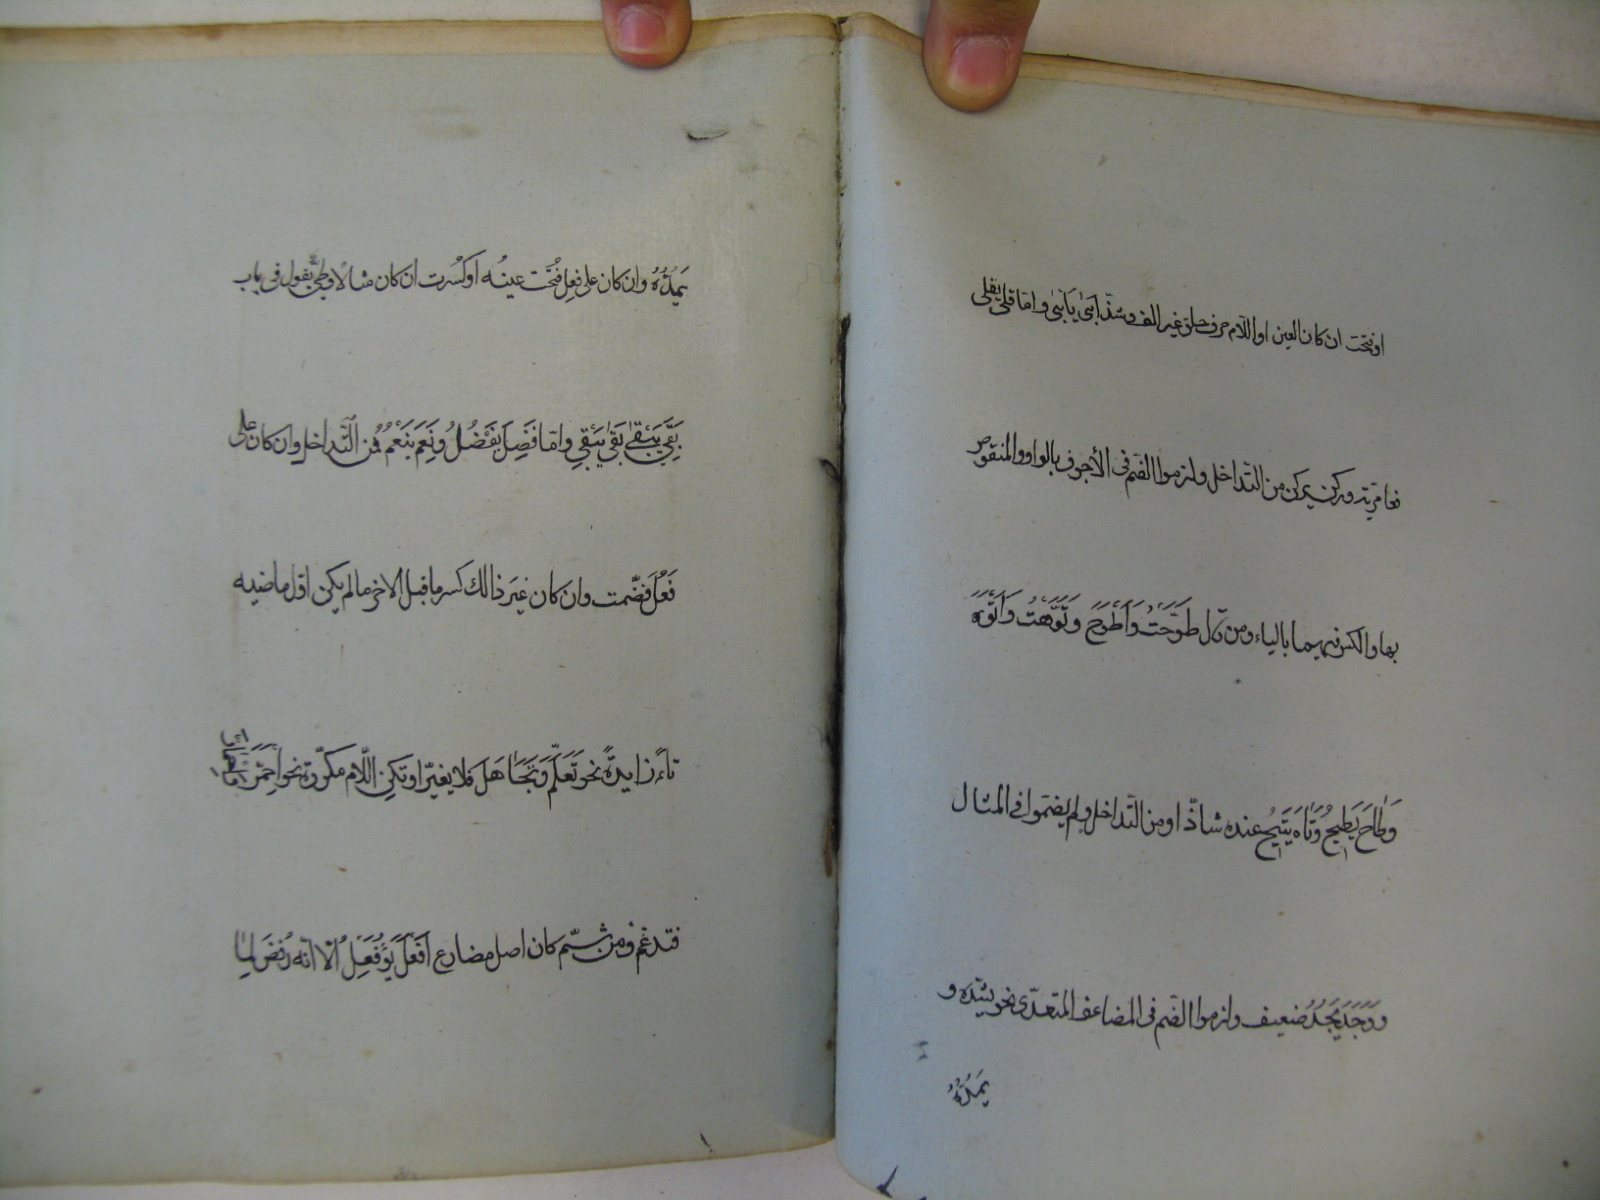 او فتحت ان كان العين او اللام حرف حلق غير الف وشذ ابى يأبى واما قلى يقلى
فعامرية وركن يركن من التداخل ولزموا الضم فى الأجوف بالواو والمنقوص
بها والكسر فيهما بالياء ومن قال طَوَّحْتُ وَاَطْوَحُ وتَوَّهْتُ وَاَتْوَهُ
وَطَاحَ يَطِيحُ وَتَاهَ يَتِيهُ عنده شاذّ او من التّداخل ولم يضمّوا فى المثال
ووَجَدَ يَجُدُ ضعيف ولزموا الضّم فى المضاعف المتعدّى نحو يشدّه و
يَمُدُّهُ
يَمُدُّهُ وان كان على فعِل فُتحت عينُه او كُسرت ان كان مثالا وطئ يقول فى باب
بَقِىَ يَبْقى بَقى يَبْقى وامّا فَضِلَ يَفْضُلُ ونَعِمَ يَنْعُمُ فمن التّداخل وان كان على
فَعُلَ فضّمت وان كان غيرَ ذالك كسر ما قبل الاخر ما لم يكن اوّل ماضيه
تاءً زايدةً نحو تَعَلَّمَ وَتَجَاهَلَ فلا يغيّر او تكن اللّام مكرّرة نحو اِحْمَرَّ
فتدغم ومن ثَمّ كان اصل مضارع اَفْعَلَ يُؤَفْعِلُ الّا انّه رُفِضَ لِما